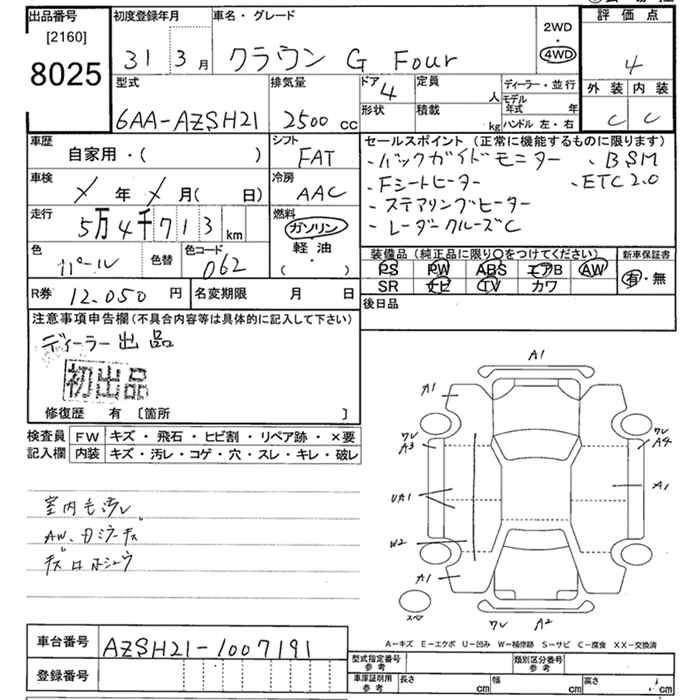 出品番号 初度登録年月 車名・グレード 2WD 評価点
[2160]
8025 31 3月 クラウン G Four ・4WD 4
型式 排気量 ドア 4 定員 人 ディーラー・並行 外装 内装
6AA-AZSH21 2500 cc 形状 積載 kg モデル年式 年 ハンドル 左・右 C C
車歴 シフト セールスポイント (正常に機能するものに限ります)
自家用・( ) FAT ・バックガイドモニター ・BSM
車検 冷房 ・Fシートヒーター ・ETC2.0
メ 年 メ 月( 日) AAC ・ステアリングヒーター
走行 燃料 ・レーダークルーズC
5万4千713 km ガソリン
色 色替 色コード 軽油・ 装備品 (純正品に限り○をつけてください) 新車保証書
パール 062 ( ) PS PW ABS エアB AW 有・無
R券 12.050 円 名変期限 月 日 SR ナビ TV カワ
注意事項申告欄(不具合内容等は具体的に記入して下さい) 後日品
ディーラー出品
初出品
修復歴 有 [箇所 ]
検査員 FW キズ・飛石・ヒビ割・リペア跡・×要
記入欄 内装 キズ・汚レ・コゲ・穴・スレ・キレ・破レ
A1
A1
ワレ A3 ワレ A4
UA1 A1
W2
A1
スペア ワレ A2
室内も汚レ
AW、ガラスキズ
A-キズ E-エクボ U-凹み W-補修跡 S-サビ C-腐食 XX-交換済
車台番号 AZSH21-1007191
型式指定番号 参考 類別区分番号 参考
登録番号 車庫証明用 参考 長さ cm 幅 cm 高さ cm